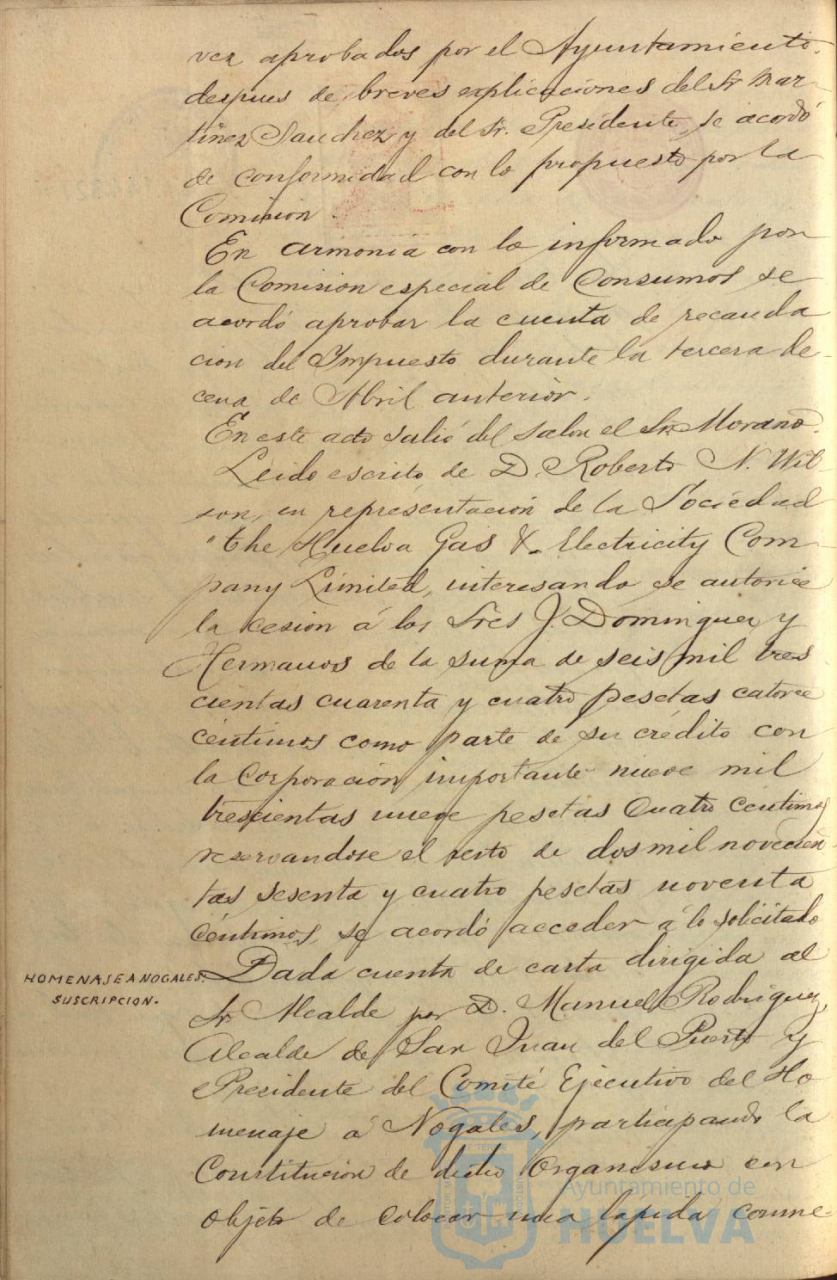 vez aprobados por el Ayuntamiento.
despues de breves explicaciones del Sr Mar-
tinez Sanchez y del Sr. Presidente, se acordó
de conformidad con lo propuesto por la
Comision.
En armonia con lo informado por
la Comision especial de Consumos se
acordó aprobar la cuenta de recauda
cion del Impuesto durante la tercera de-
cena de Abril anterior.
En este acto salió del salon el Sr. Morano.
Leido escrito de D. Roberto N. Wil
son, en representación de la Sociedad
"The Huelva Gas & Electricity Com-
pany Limited, interesando se autorice
la cesion á los Sres J. Dominguez y
Hermanos de la suma de seis mil tres
cientas cuarenta y cuatro pesetas catorce
céntimos como parte de su crédito con
la Corporación importante nueve mil
trescientas nueve pesetas cuatro céntimos
reservandose el resto de dos mil novecien
tas sesenta y cuatro pesetas noventa
céntimos, se acordó acceder á lo solicitado
HOMENAJE A NOGALES.
SUSCRIPCION.
Dada cuenta de carta dirigida al
Sr Alcalde por D. Manuel Rodriguez,
Alcalde de San Juan del Puerto y
Presidente del Comité Ejecutivo del Ho
menaje á Nogales, participando la
Constitución de dicho Organismo con
objeto de colocar una lapida conme-
Ayuntamiento de
HUELVA